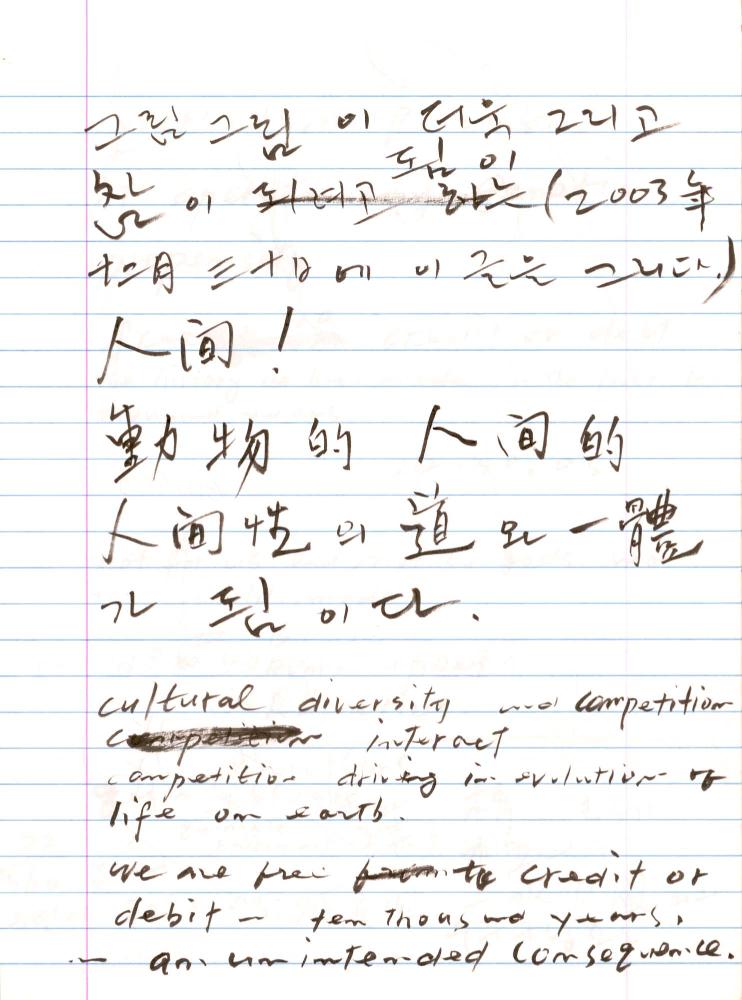 그림 그림 이 더욱 그리고
됨 이
참 이 되려고 하는 (2003年
十二月 三十日 에 이 글을 그리다.)
人间!
動物的 人间的
人间性 의 道 와 一體
가 됨 이다.
cultural diversity and competition
competition interact
competition driving in evolution of
life on earth.
We are free from to credit or
debit – ten thousand years.
– an unintended consequence.